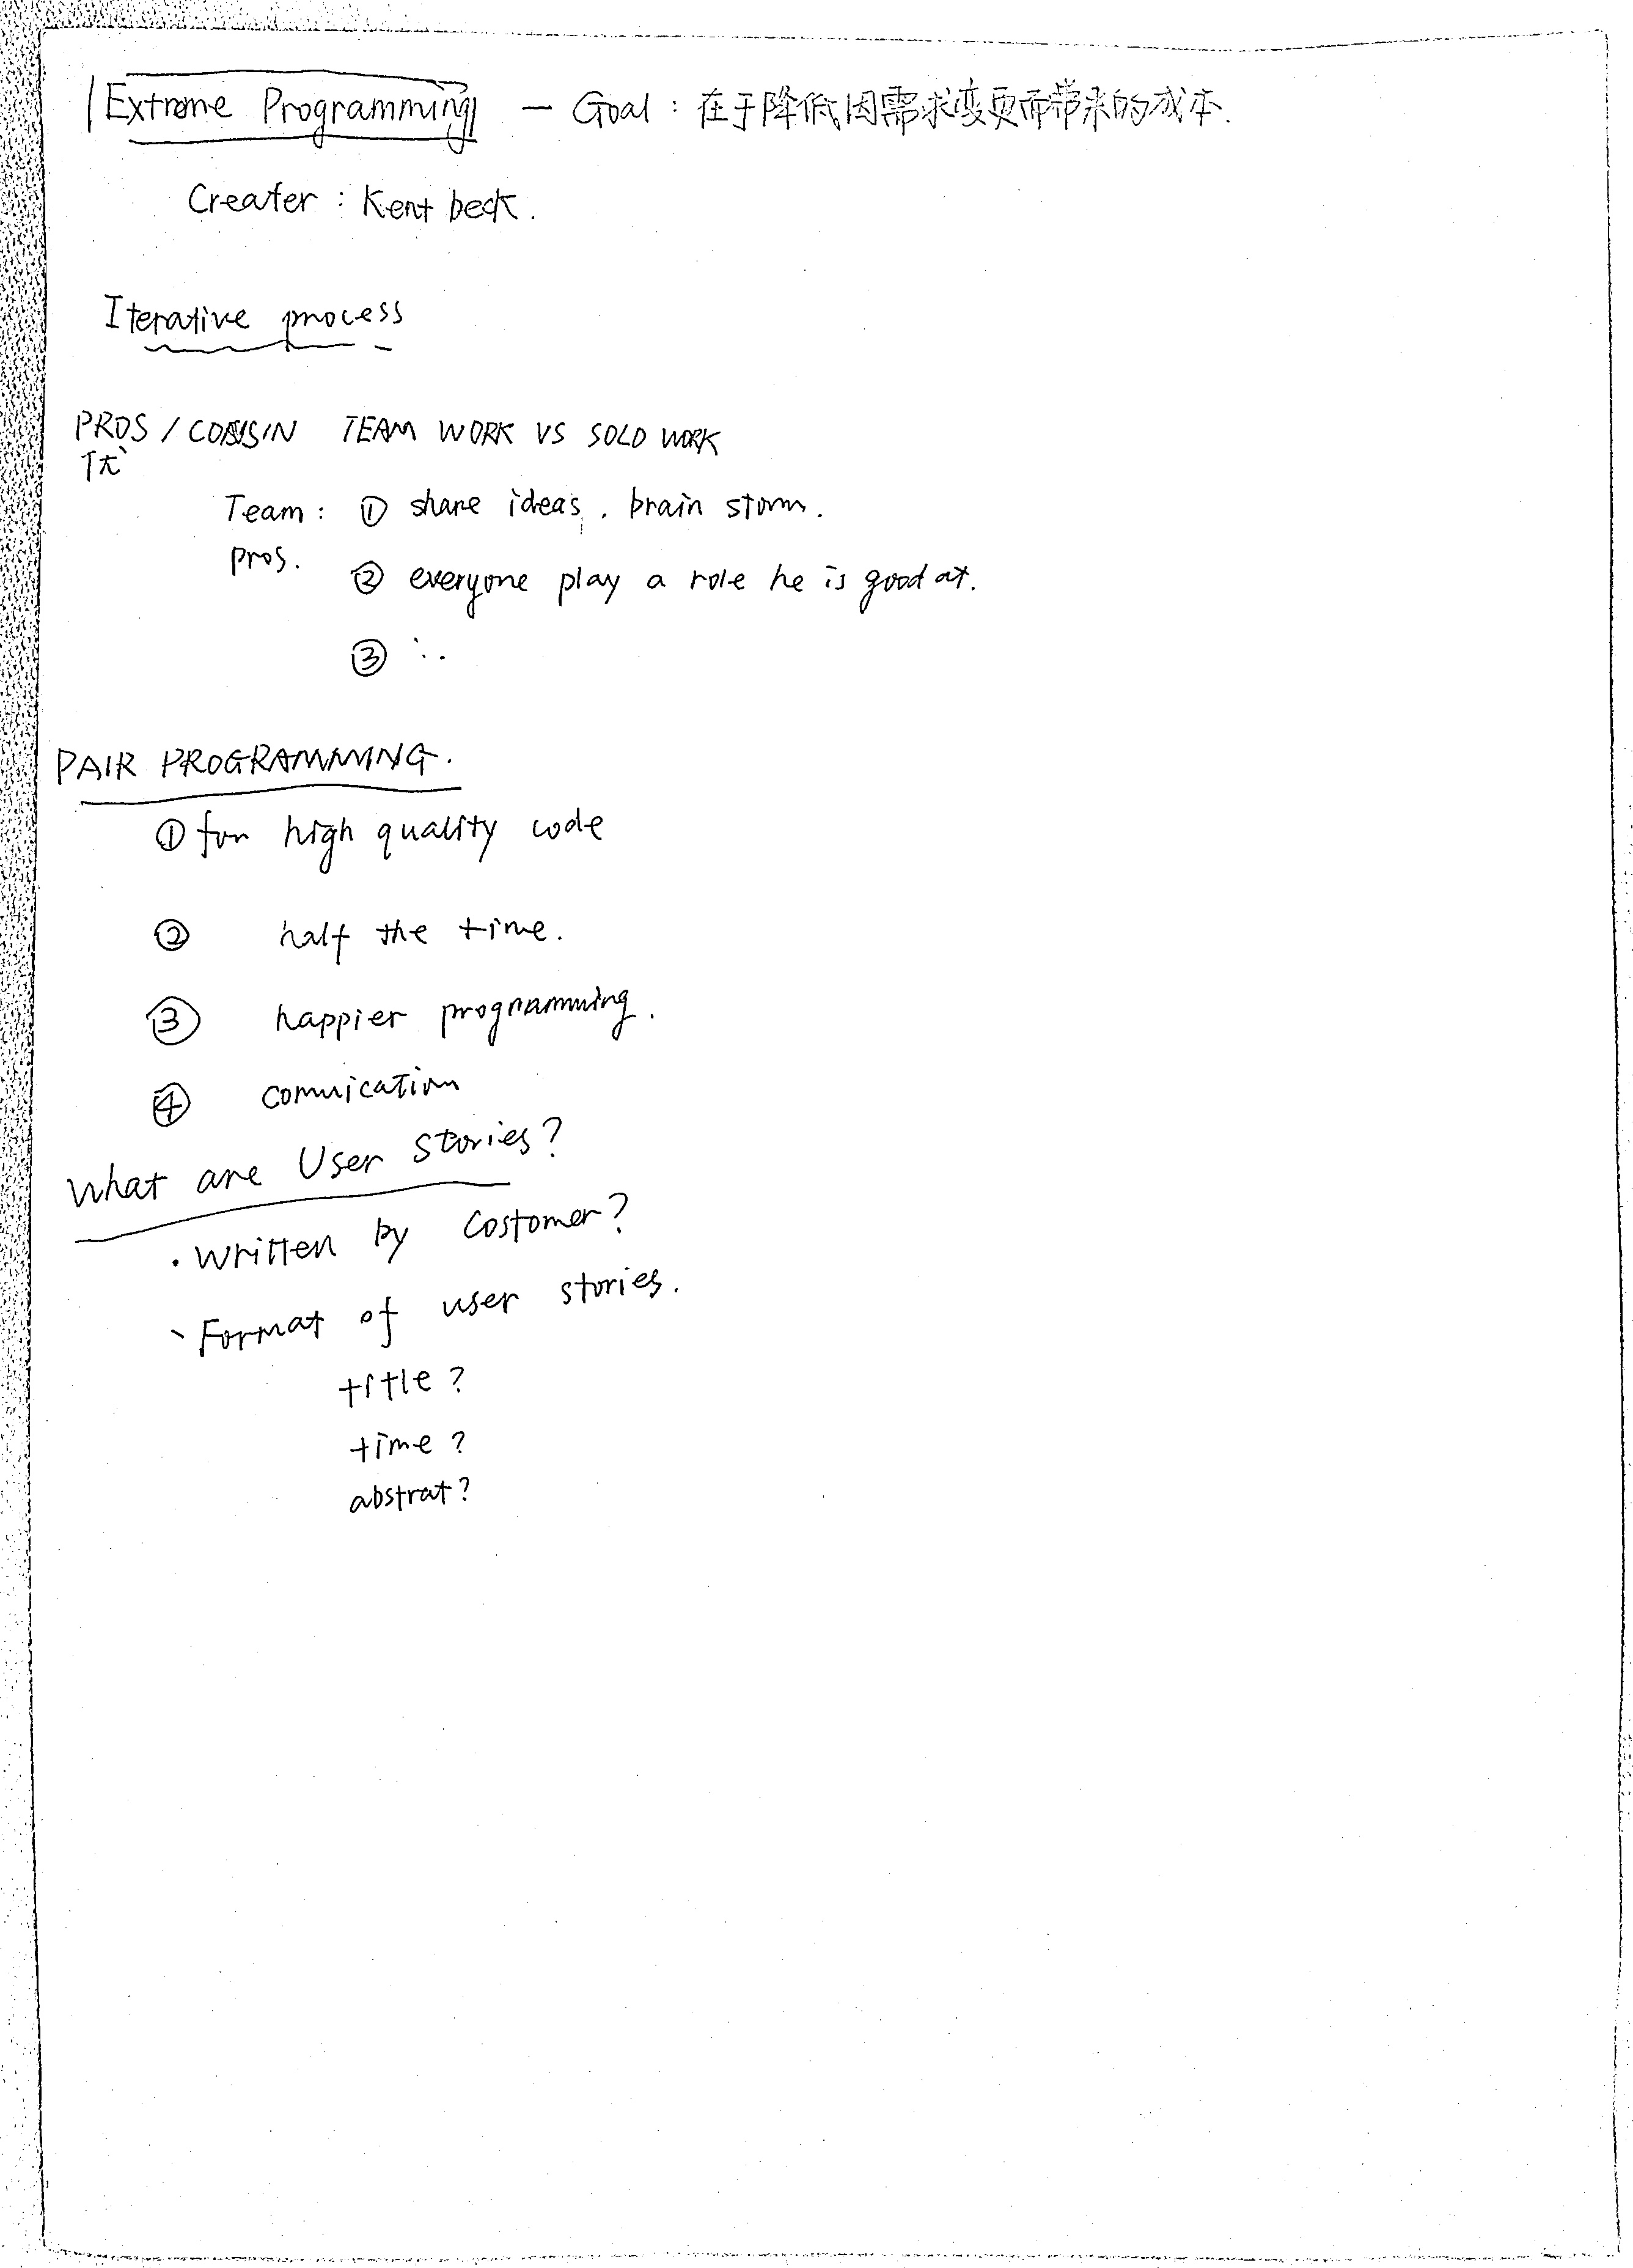 Extreme Programming — Goal : 在于降低因需求变更而带来的成本.
Creater : Kent beck.
Iterative process
PROS / CONS IN TEAM WORK VS SOLO WORK
优
Team : ① share ideas, brain storm.
pros.
② everyone play a role he is good at.
③ ...
PAIR PROGRAMMING.
① for high quality code
② half the time.
③ happier programming.
④ comnication
What are User Stories?
· Written by Costomer?
· Format of user stories.
title?
time?
abstrat?